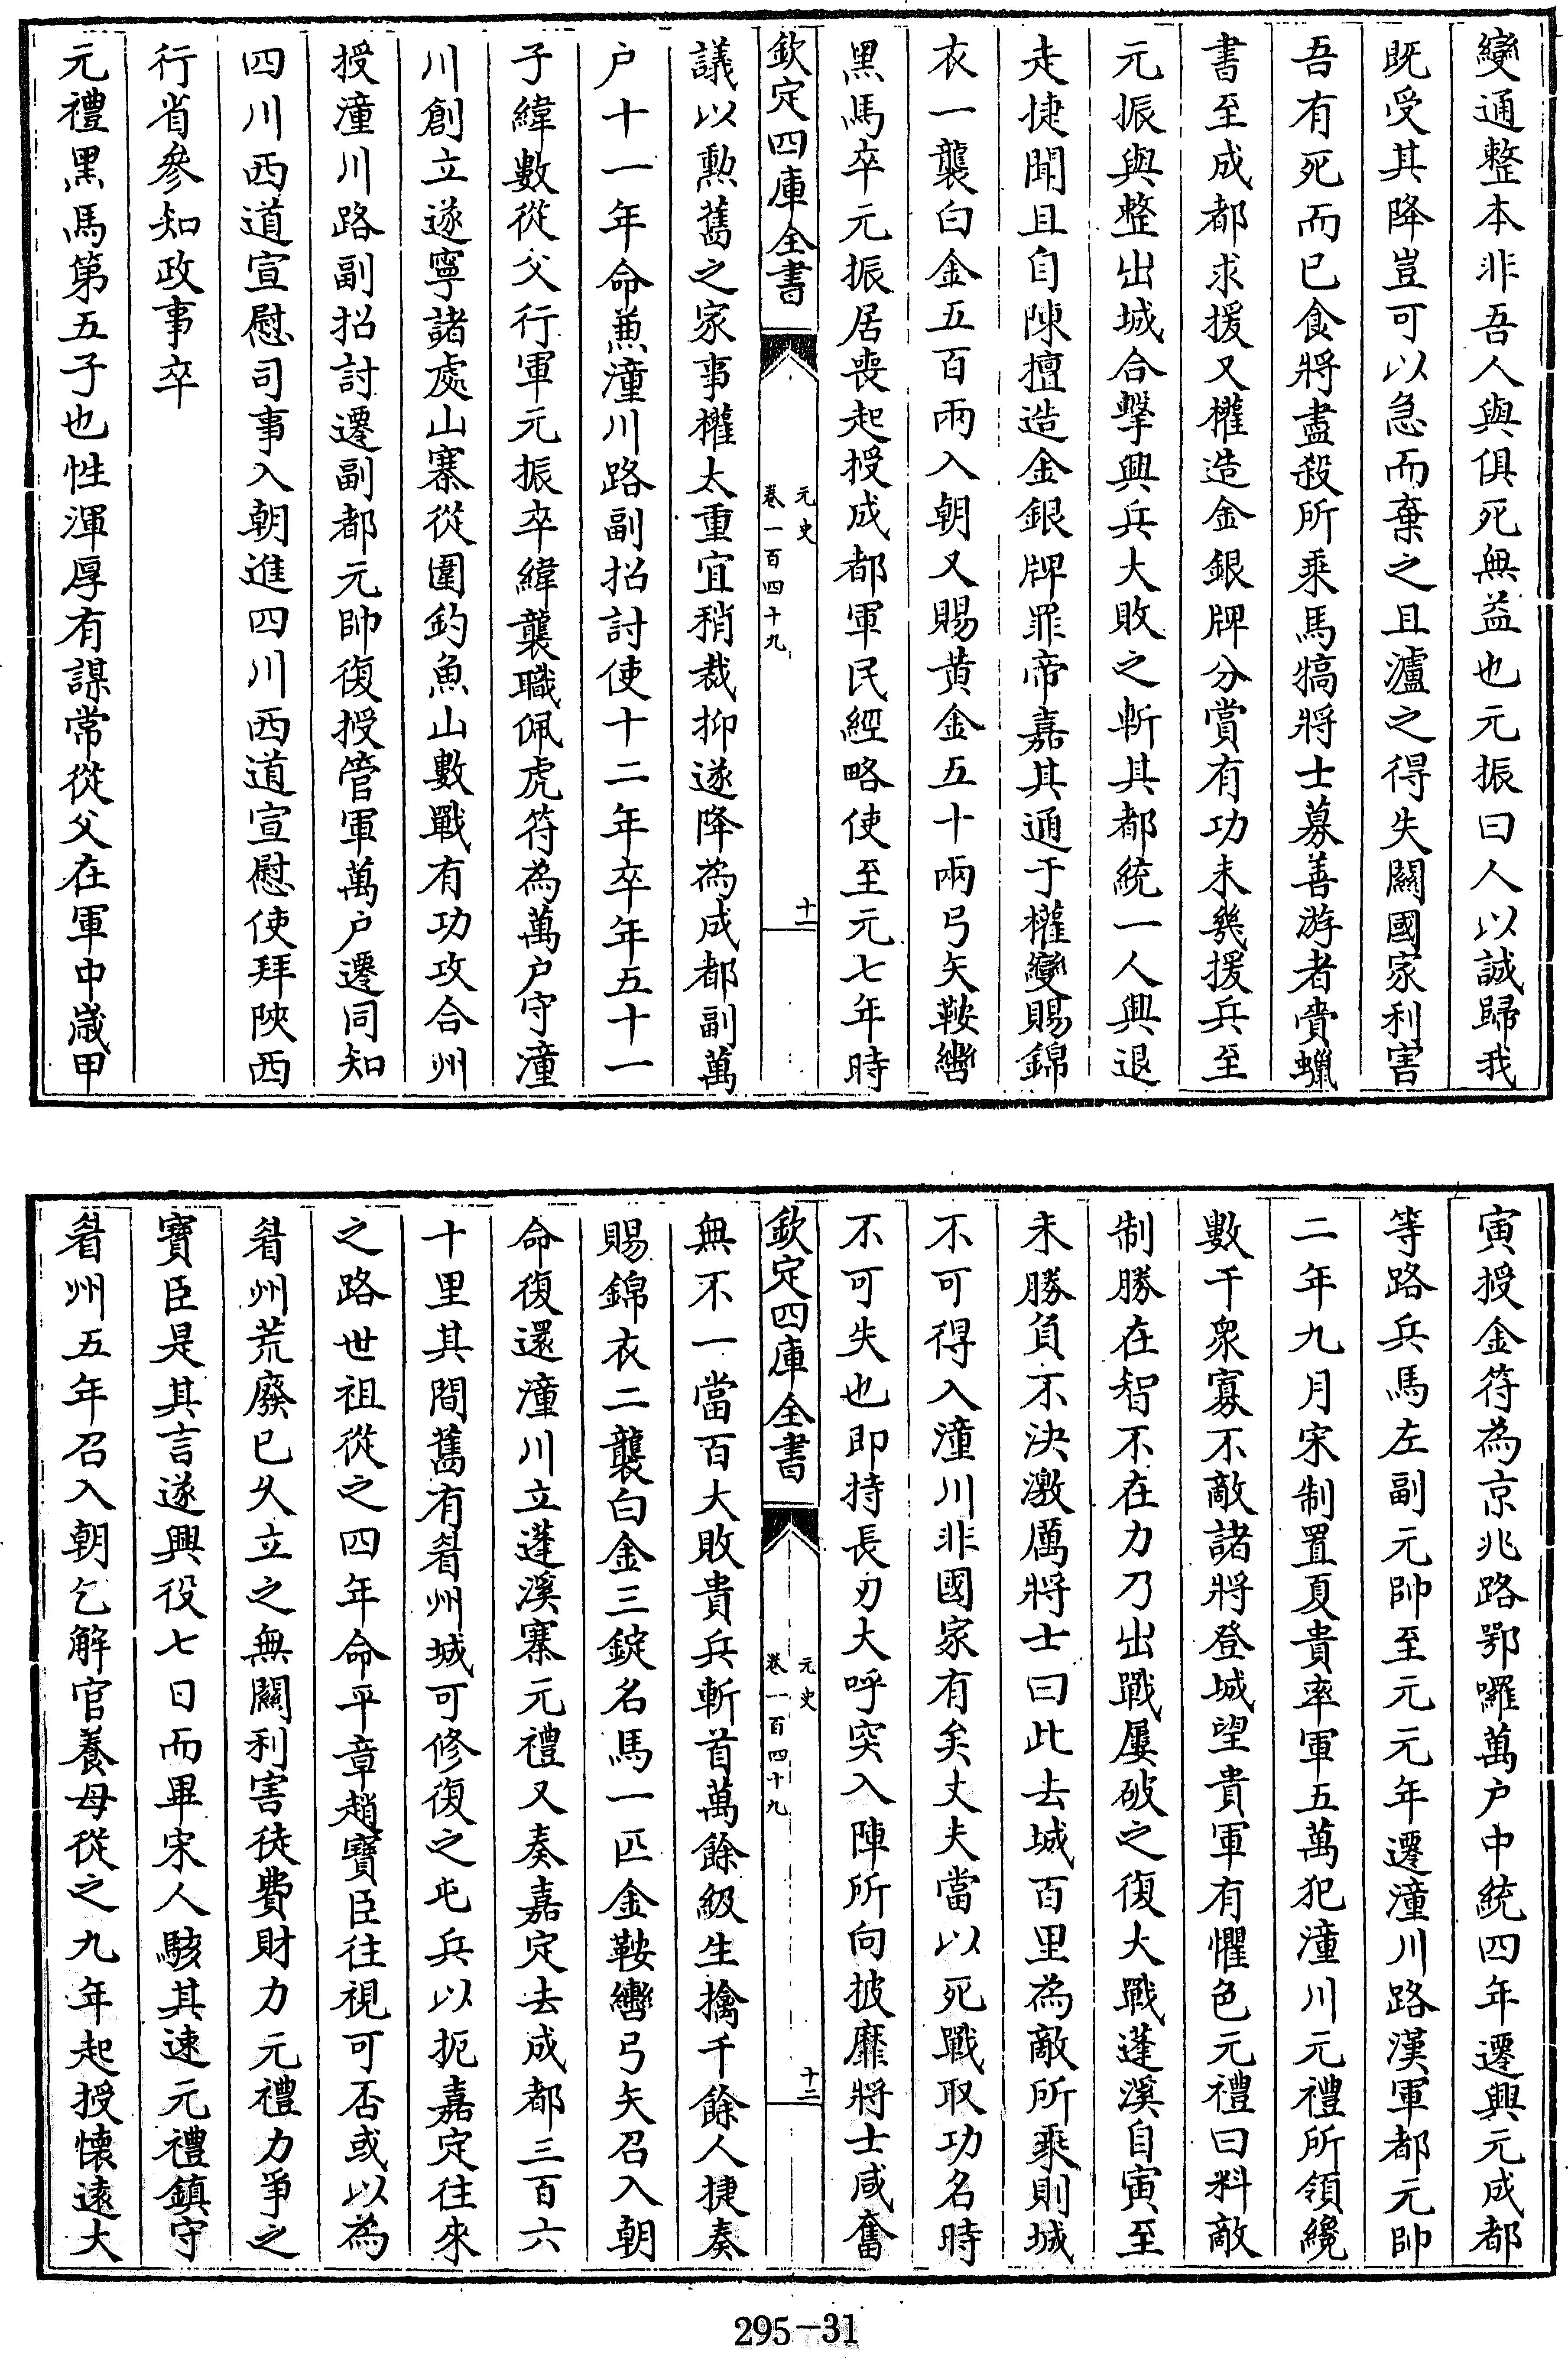 變通整本非吾人與俱死無益也元振曰人以誠歸我
既受其降豈可以急而棄之且瀘之得失關國家利害
吾有死而已食將盡殺所乘馬犒將士募善游者賫蠟
書至成都求援又權造金銀牌分賞有功未幾援兵至
元振與整出城合擊興兵大敗之斬其都統一人興退
走捷聞且自陳擅造金銀牌罪帝嘉其通于權變賜錦
衣一襲白金五百兩入朝又賜黄金五十兩弓矢鞍轡
黑馬卒元振居喪起授成都軍民經略使至元七年時
欽定四庫全書
元史
卷一百四十九
十一
議以勲舊之家事權太重宜稍裁抑遂降為成都副萬
户十一年命兼潼川路副招討使十二年卒年五十一
子緯數從父行軍元振卒緯襲職佩虎符為萬户守潼
川創立遂寧諸處山寨從圍釣魚山數戰有功攻合州
授潼川路副招討遷副都元帥復授管軍萬户遷同知
四川西道宣慰司事入朝進四川西道宣慰使拜陝西
行省參知政事卒
元禮黑馬第五子也性渾厚有謀常從父在軍中嵗甲
寅授金符為京兆路鄂囉萬户中統四年遷興元成都
等路兵馬左副元帥至元元年遷潼川路漢軍都元帥
二年九月宋制置夏貴率軍五萬犯潼川元禮所領纔
數千衆寡不敵諸將登城望貴軍有懼色元禮曰料敵
制勝在智不在力乃出戰屢破之復大戰蓬溪自寅至
未勝負不決激厲將士曰此去城百里為敵所乘則城
不可得入潼川非國家有矣丈夫當以死戰取功名時
不可失也即持長刃大呼突入陣所向披靡將士咸奮
欽定四庫全書
元史
卷一百四十九
十二
無不一當百大敗貴兵斬首萬餘級生擒千餘人捷奏
賜錦衣二襲白金三錠名馬一匹金鞍轡弓矢召入朝
命復還潼川立蓬溪寨元禮又奏嘉定去成都三百六
十里其間舊有眉州城可修復之屯兵以扼嘉定往來
之路世祖從之四年命平章趙寶臣往視可否或以為
眉州荒廢已久立之無關利害徒費財力元禮力爭之
寶臣是其言遂興役七日而畢宋人駭其速元禮鎮守
眉州五年召入朝乞解官養母從之九年起授懐遠大
295-31